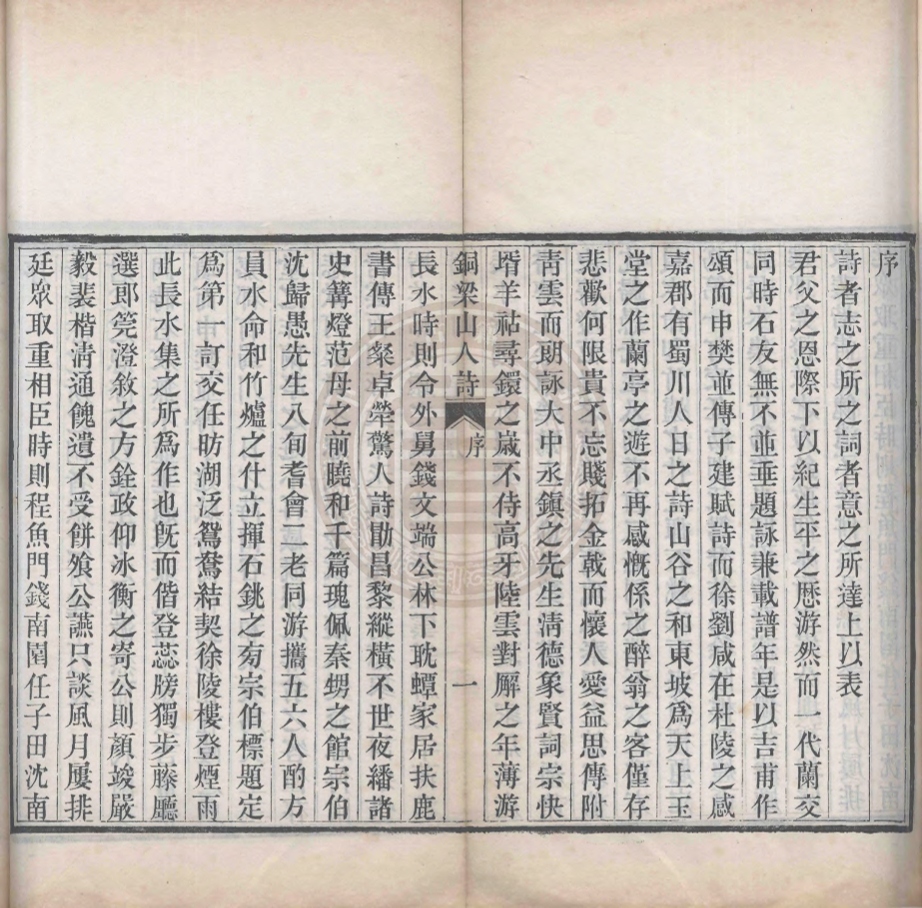 序
詩者志之所之詞者意之所達上以表
君父之恩際下以紀生平之歴游然而一代蘭交
同時石友無不並垂題詠兼載譜年是以吉甫作
頌而申樊並傳子建賦詩而徐劉咸在杜陵之感
嘉郡有蜀川人日之詩山谷之和東坡爲天上玉
堂之作蘭亭之遊不再感慨係之醉翁之客僅存
悲歡何限貴不忘賤拓金戟而懷人愛益思傳附
靑雲而朗詠大中丞鎮之先生淸德象賢詞宗快
壻羊祜尋鐶之嵗不侍高牙陸雲對廨之年薄游
銅梁山人詩 序 一
長水時則令外舅錢文端公林下耽蟫家居扶鹿
書傳王粲卓犖驚人詩勖昌黎縱橫不世夜繙諸
史篝燈范母之前曉和千篇瑰佩秦甥之館宗伯
沈歸愚先生八旬耆會二老同游攜五六人酌方
員水命和竹爐之什立揮石銚之㫄宗伯標題定
爲第一訂交任昉湖泛鴛鴦結契徐陵樓登煙雨
此長水集之所爲作也旣而偕登蕊牓獨步藤廳
選郎筦澄敘之方銓政仰冰衡之寄公則顔竣嚴
毅裴楷淸通餽遺不受餠飧公讌只談風月屢排
廷眾取重相臣時則程魚門錢南園任子田沈南